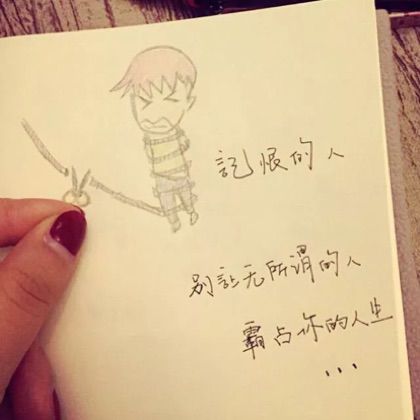 記恨的人
别讓无所謂的人
霸占你的人生
...